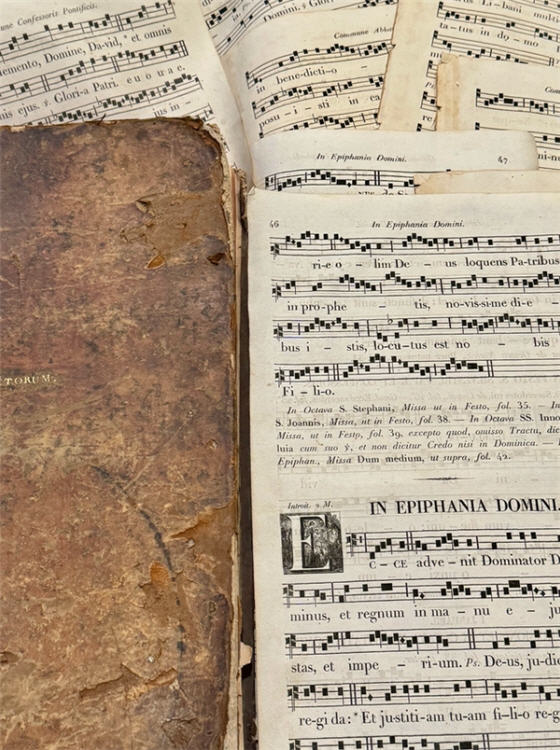 une Confessoris Pontificis.
emento, Domine, Da-vid, * et omnis
nis ejus. ℣. Glori-a Patri. e u o u a e.
jus in -
Domini. ℣. Glori
Commune Abba
in bene-dicti-o -
posu - i - sti in ca
Li - bani
ta - tus in do - mo
pre
re
ni-mi
In Epiphania Domini. 47
TORUM.
46 In Epiphania Domini.
ri-e o - lim De - us loquens Pa-tribus
in pro-phe tis, no-vis-si-me di-e -
bus i - stis, lo-cu-tus est no - bis
Fi - li-o.
In Octava S. Stephani, Missa ut in Festo, fol. 35. — In
S. Joannis, Missa, ut in Festo, fol. 38. — In Octava SS. Inno
Missa, ut in Festo, fol. 39, excepto quod, omisso Tractu, dic
luia cum suo ℣, et non dicitur Credo nisi in Dominica. —
Epiphan., Missa Dum medium, ut supra, fol. 42.
Introit. 2 M. IN EPIPHANIA DOMINI.
E C - CE adve - nit Dominator D
minus, et regnum in ma - nu e - ju
stas, et impe - ri-um. Ps. De-us, ju-dic
re-gi da: * Et ju-stiti-am tu-am fi-li-o re-g